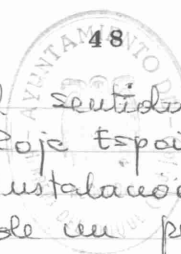 48
AYUNTAMIENTO D
sentido
Roja Espa
instalació
de un p